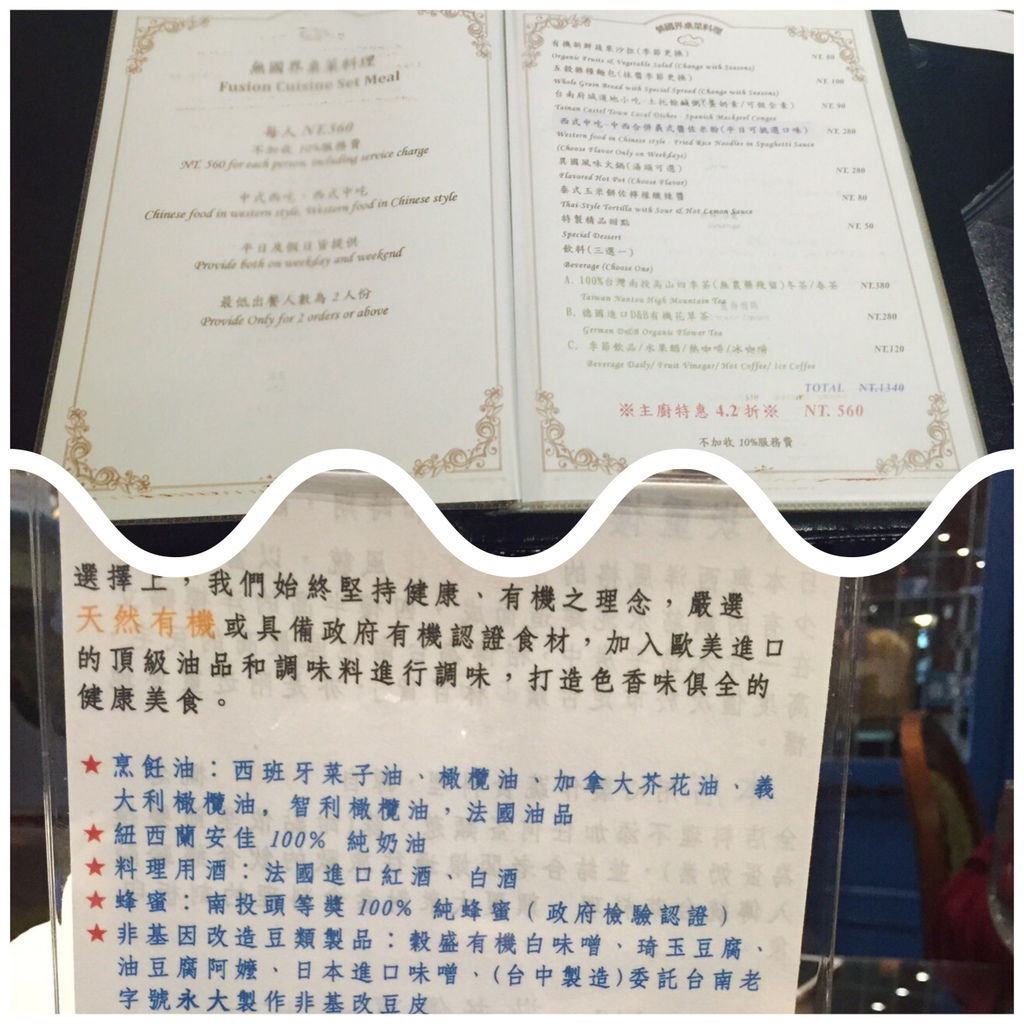 無國界桌菜料理
Fusion Cuisine Set Meal
每人 NT.560
不加收 10%服務費
NT. 560 for each person, including service charge
中式西吃、西式中吃
Chinese food in western style, Western food in Chinese style
平日及假日皆提供
Provide both on weekday and weekend
最低出餐人數為 2 人份
Provide Only for 2 orders or above
無國界桌菜料理
有機新鮮蔬果沙拉(季節更換) NT. 80
Organic Fruits & Vegetable Salad (Change with Seasons)
五穀雜糧麵包(抹醬季節更換) NT. 100
Whole Grain Bread with Special Spread (Change with Seasons)
台南府城道地小吃-土魠魚鹹粥(蛋奶素/可做全素) NT. 90
Tainan Castel Town Local Dishes - Spanish Mackerel Congee
西式中吃-中西合併義式醬佐米粉(平日可挑選口味) NT. 280
Western food in Chinese style - Fried Rice Noodles in Spaghetti Sauce
(Choose Flavor Only on Weekdays)
異國風味火鍋(湯頭可選) NT. 280
Flavored Hot Pot (Choose Flavor)
泰式玉米餅佐檸檬酸辣醬 NT. 80
Thai-Style Tortilla with Sour & Hot Lemon Sauce
特製精品甜點 NT. 50
Special Dessert
飲料(三選一)
Beverage (Choose One)
A. 100%台灣南投高山四季茶(無農藥殘留)冬茶/春茶 NT.380
Taiwan Nantou High Mountain Tea
B. 德國進口D&B有機花草茶 NT.280
German D&B Organic Flower Tea
C. 季節飲品/水果醋/熱咖啡/冰咖啡 NT.120
Beverage Daily/ Fruit Vinegar/ Hot Coffee/ Ice Coffee
TOTAL NT.1340
※主廚特惠 4.2 折※ NT. 560
不加收 10%服務費
選擇上,我們始終堅持健康、有機之理念,嚴選
天然有機或具備政府有機認證食材,加入歐美進口
的頂級油品和調味料進行調味,打造色香味俱全的
健康美食。
★烹飪油:西班牙菜子油、橄欖油、加拿大芥花油、義
大利橄欖油, 智利橄欖油,法國油品
★紐西蘭安佳 100% 純奶油
★料理用酒:法國進口紅酒、白酒
★蜂蜜:南投頭等獎 100% 純蜂蜜(政府檢驗認證)
★非基因改造豆類製品:穀盛有機白味噌、琦玉豆腐、
油豆腐阿嬤、日本進口味噌、(台中製造)委託台南老
字號永大製作非基改豆皮